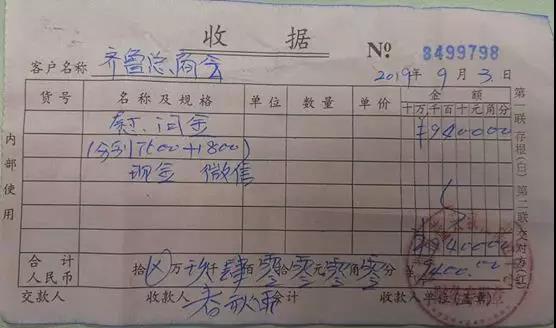 收 据
№ 8499798
客户名称 齐鲁总商会 2019年9月3日
货号 名称及规格 单位 数量 单价 金额
十万千百十元角分
慰问金 ¥940000
(分别7600+1800)
现金 微信
¥940000
合计
人民币 拾 万 仟肆佰零拾零元零角零分 ¥9400.00
交款人 收款人 会计 收款人单位(盖章)
内部使用
第一联存根(白) 第二联交对方(红)